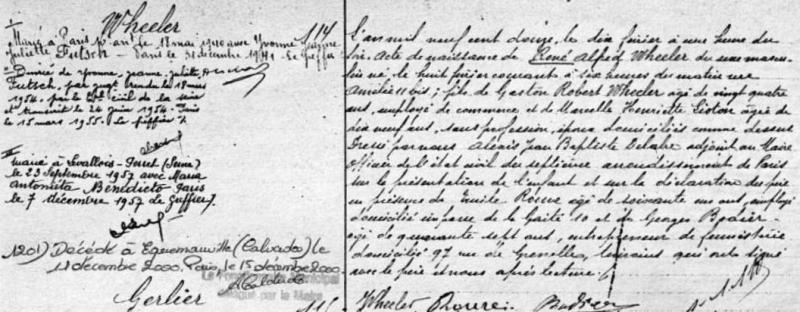 Wheeler
114
I
Marié à Paris 16e arr. le 18 mai 1940 avec Yvonne Jeanne
Juliette Futsch - Paris le 31 décembre 1941 - Le Greffier
Divorcé de Yvonne Jeanne Juliette
Futsch, par jugt rendu le 18 mars
1954 par le civil de la Seine
et transcrit le 24 juin 1954 - Paris
le 15 mars 1955. Le greffier
II
Marié à Levallois-Perret (Seine)
le 23 Septembre 1957 avec Maria
Antonieta Benedicto Paris
le 7 décembre 1957 le Greffier
1201) Décédé à Equemauville (Calvados) le
11 décembre 2000. Paris, le 15 décembre 2000
Le Fonctionnaire Municipal
délégué par le Maire
Gerlier
L'an mil neuf cent douze, le dix février à une heure du
soir. Acte de naissance de René Alfred Wheeler du sexe mascu-
lin né, le huit février courant à six heures du matin rue
Amélie 11 bis; fils de Gaston Robert Wheeler âgé de vingt quatre
ans, employé de commerce et de Marcelle Henriette âgée de
dix neuf ans, sans profession, époux domiciliés comme dessus
Dressé par nous Alexis Jean Baptiste Delabre adjoint au Maire
Officier de l'état civil du septième arrondissement de Paris
sur la présentation de l'enfant et sur la déclaration du père
en présence de Emile Roure âgé de soixante un ans, employé
domicilié impasse de la Gaîté 10 et de Georges Bodier
âgé de quarante sept ans, entrepreneur de fumisterie
domicilié 97 rue de Grenelle, témoins qui ont signé
avec le père et nous après lecture.
Wheeler Roure Bodier